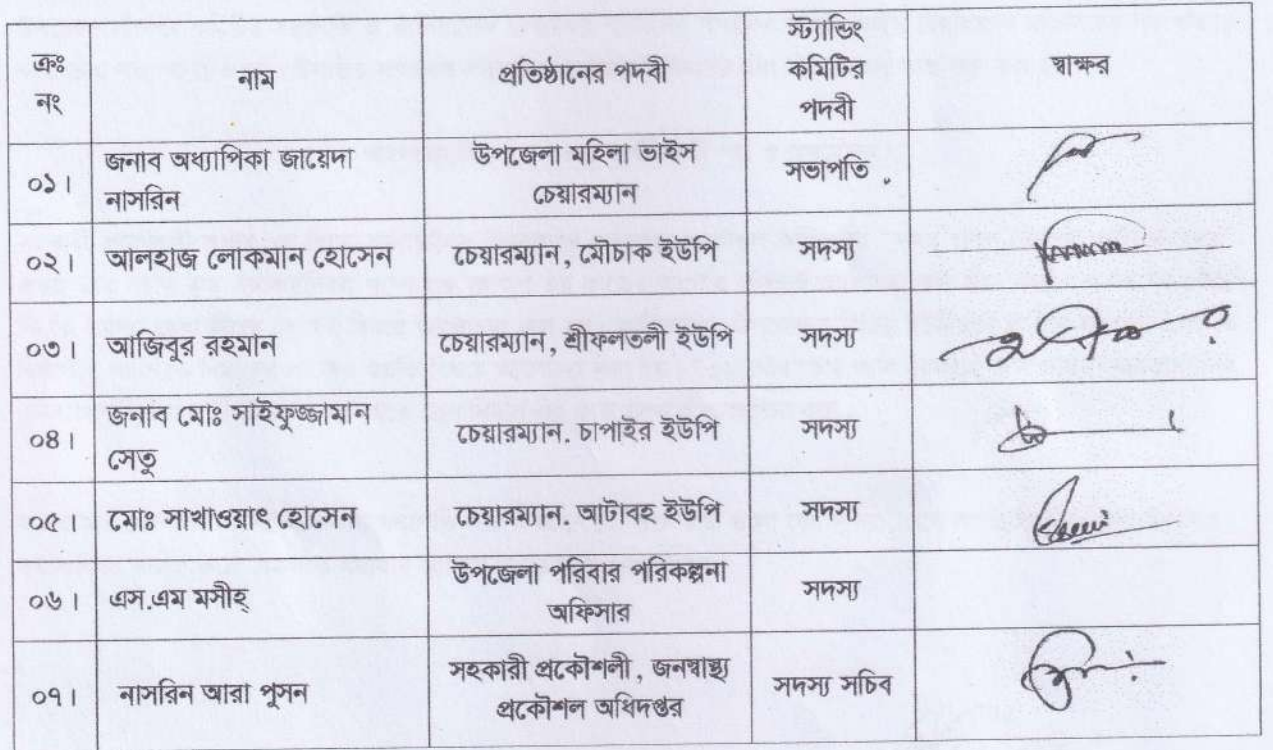 ক্রঃ নং নাম প্রতিষ্ঠানের পদবী স্ট্যান্ডিং কমিটির পদবী স্বাক্ষর
০১। জনাব অধ্যাপিকা জায়েদা নাসরিন উপজেলা মহিলা ভাইস চেয়ারম্যান সভাপতি
০২। আলহাজ লোকমান হোসেন চেয়ারম্যান, মৌচাক ইউপি সদস্য
০৩। আজিবুর রহমান চেয়ারম্যান, শ্রীফলতলী ইউপি সদস্য
০৪। জনাব মোঃ সাইফুজ্জামান সেতু চেয়ারম্যান. চাপাইর ইউপি সদস্য
০৫। মোঃ সাখাওয়াৎ হোসেন চেয়ারম্যান, আটাবহ ইউপি সদস্য
০৬। এস.এম মসীহ্ উপজেলা পরিবার পরিকল্পনা অফিসার সদস্য
০৭। নাসরিন আরা পুসন সহকারী প্রকৌশলী, জনস্বাস্থ্য প্রকৌশল অধিদপ্তর সদস্য সচিব